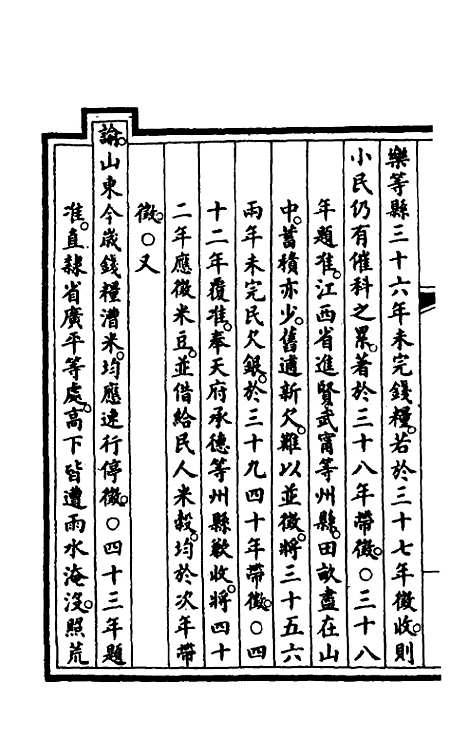 樂等縣三十六年未完錢糧。若於三十七年徵收。則
小民仍有催科之累。著於三十八年帶徵。○三十八
年題准。江西省進賢武甯等州縣。田畝盡在山
中。蓄積亦少。舊逋新欠。難以並徵。將三十五六
兩年未完民欠銀。於三十九四十年帶徵。○四
十二年覆准。奉天府承德等州縣歉收。將四十
二年應徵米豆。並借給民人米穀。均於次年帶
徵。○又
諭。山東今歲錢糧漕米。均應速行停徵。○四十三年題
准。直隸省廣平等處。高下皆遭雨水淹沒。照荒